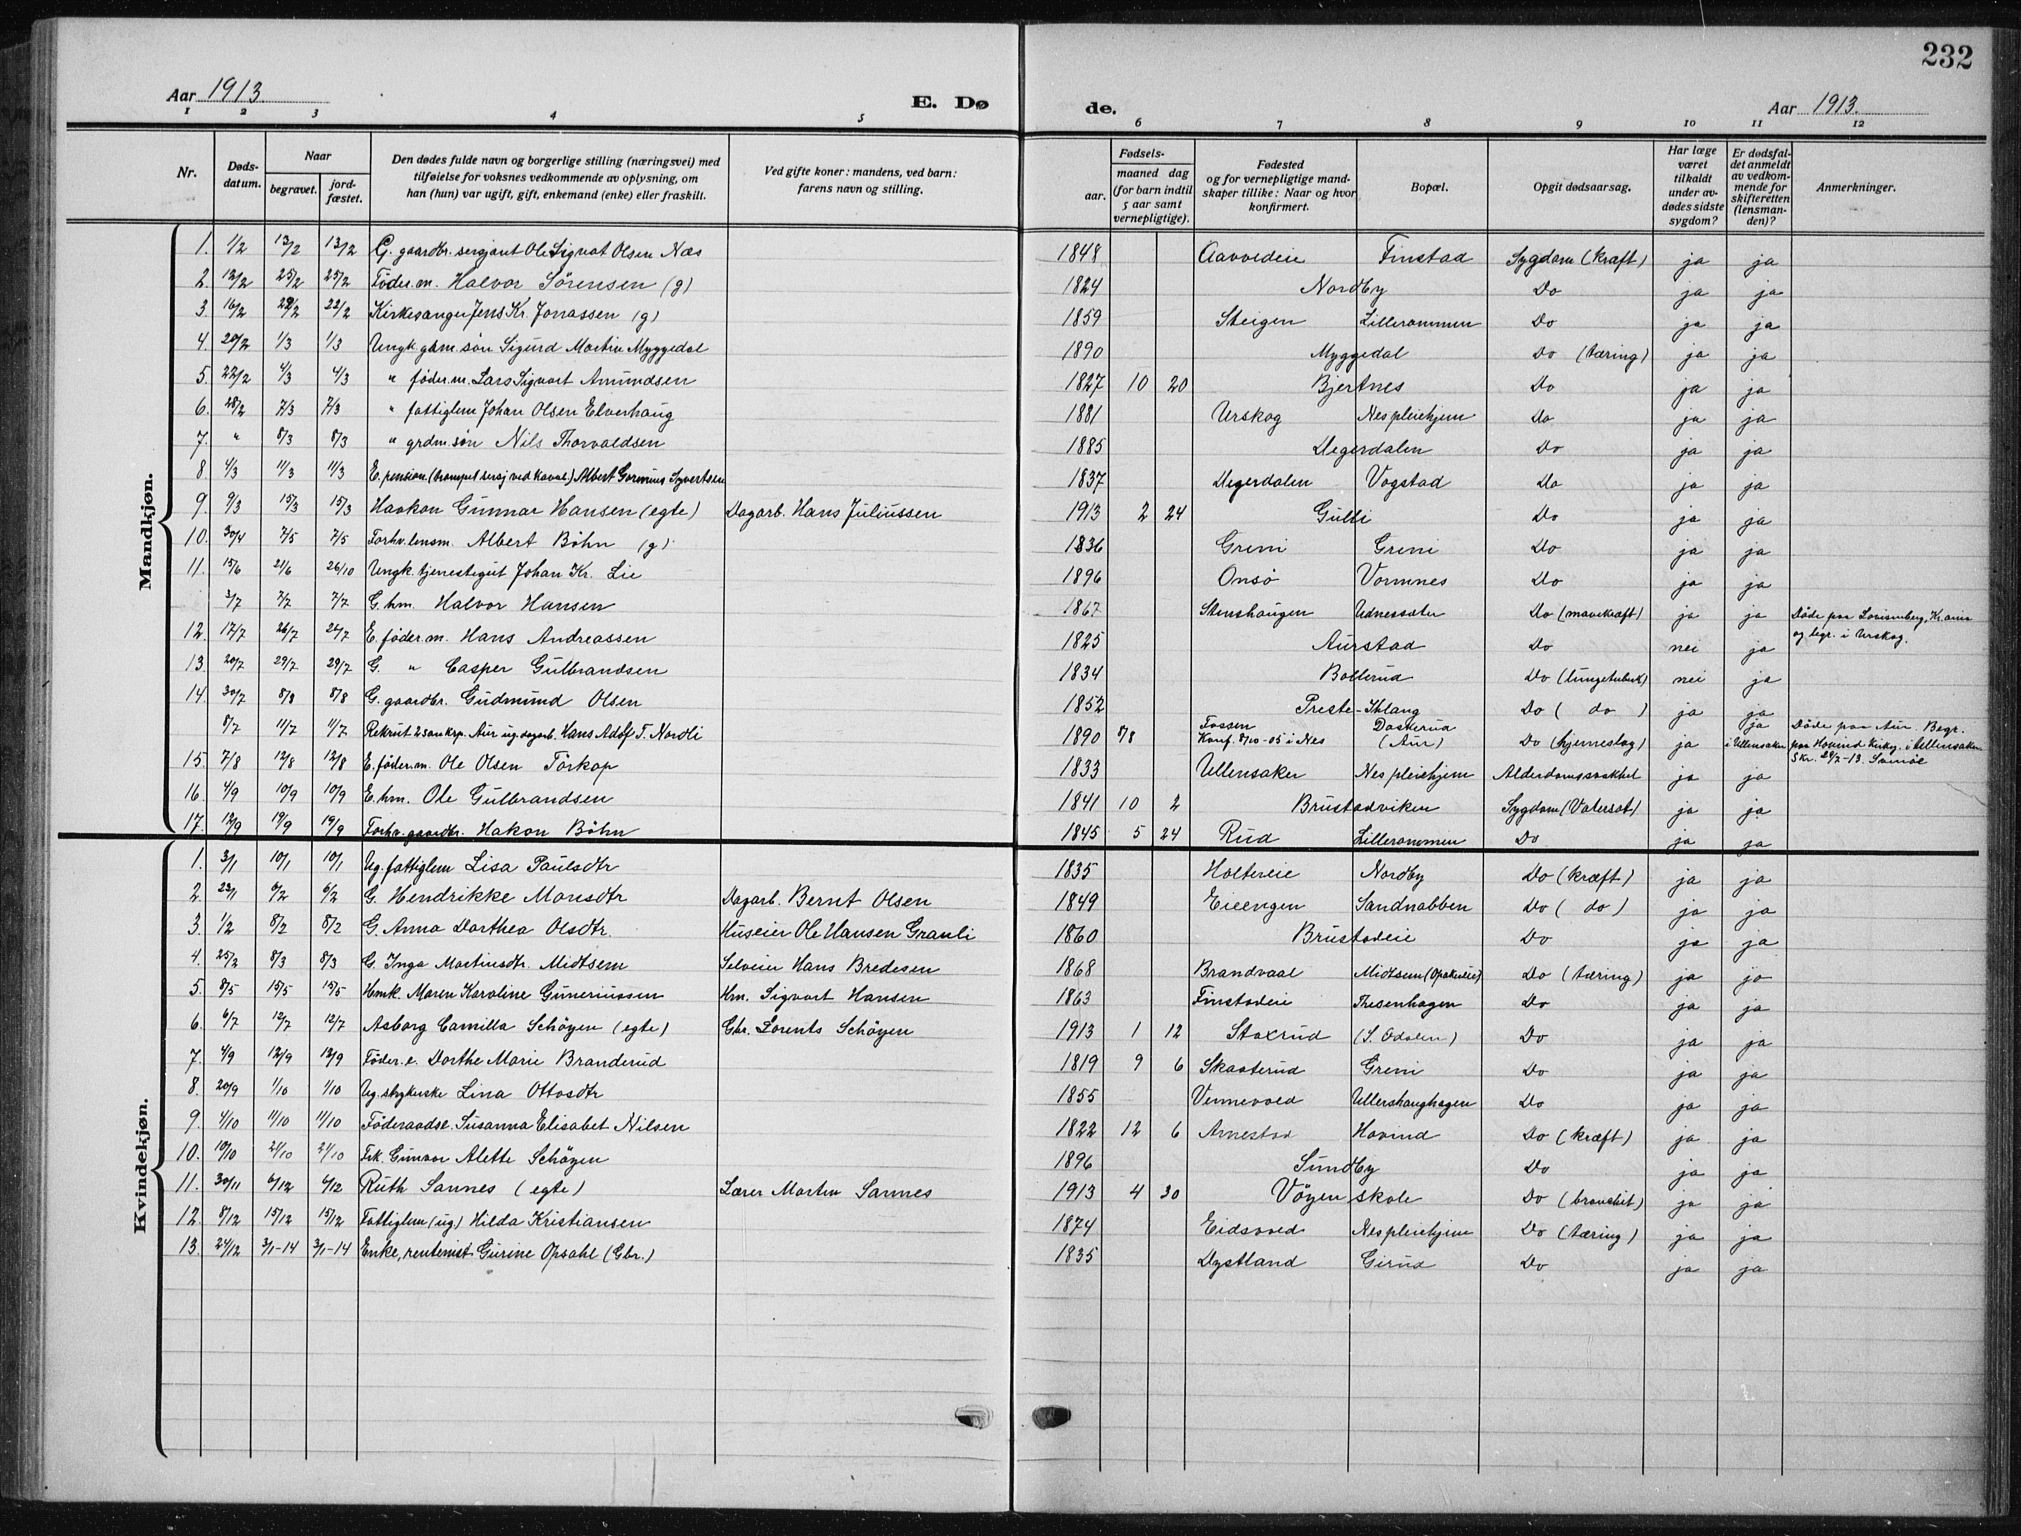 232
Aar 1913. E. Dø de. Aar 1913.
1 2 3 4 5 6 7 8 9 10 11 12
Nr. Døds-datum. Naar begravet. jord-fæstet. Den dødes fulde navn og borgerlige stilling (næringsvei) med tilføielse for voksnes vedkommende av oplysning, om han (hun) var ugift, gift, enkemand (enke) eller fraskilt. Ved gifte koner: mandens, ved barn: farens navn og stilling. Fødsels- aar. maaned dag (for barn indtil 5 aar samt vernepligtige). Fødested og for vernepligtige mandskaper tillike: Naar og hvor konfirmert. Bopæl. Opgit dødsaarsag. Har læge været tilkaldt under avdødes sidste sygdom? Er dødsfaldet anmeldt av vedkommende for skifteretten (lensmanden)? Anmerkninger.
Mandkjøn.
1. 1/2 13/2 13/2 G. gaardbr. sersjant Ole Sigvat Olsen Næs 1848 Aavvedeie Finstad Sygdom (kræft) ja ja
2. 12/2 25/2 25/2 Føder.m. Halvor Sørensen (g) 1824 Nordby Do ja ja
3. 16/2 22/2 22/2 Kirkesanger Jens Kr. Jonassen (g) 1859 Steigen Lillerommen Do ja ja
4. 20/2 1/3 1/3 Ungk. gbm. søn Sigurd Martin Myggedal 1890 Myggedal Do (tæring) ja ja
5. 22/2 4/3 4/3 " føder.m. Lars Sigvart Amundsen 1827 10 20 Bjertnes Do ja ja
6. 28/2 7/3 7/3 " fattiglem Johan Olsen Elverhaug 1881 Urskog Nes pleiehjem Do ja ja
7. " 8/3 8/3 " grdm. søn Nils Thorvaldsen 1885 Degerdalen Do ja ja
8 4/3 11/3 11/3 E. pension. (trompet sersj ved kaval.) Albert Gormius Syvertsen 1837 Degerdalen Vogstad Do ja ja
9. 9/3 15/3 15/3 Haakon Gunnar Hansen (egte) Dagarb. Hans Juliussen 1913 2 24 Gulli Do ja ja
10. 30/4 7/5 7/5 Forhv. lensm. Albert Bøhn (g) 1836 Greni Greni Do ja ja
11. 15/6 21/6 26/10 Ungk. tjenestegut Johan Kr. Lie 1896 Onsø Vormnes Do ja ja
3/7 7/7 7/7 G. hm. Halvor Hansen 1867 Stenshaugen Udnessæter Do (mavekræft) ja ja Døde paa Lovisenberg, Kr.ania og begr. i Urskog.
12. 17/7 26/7 24/7 E. føder.m. Hans Andreassen 1825 Aurstad Do nei ja
13. 20/7 29/7 29/7 G. " Casper Gulbrandsen 1834 Bollerud Do (lungetuberk) nei ja
14. 30/7 8/8 8/8 G. gaardbr. Gudmund Olsen 1852 Preste-Ihlang Do ( do ) ja ja
8/7 11/7 11/7 Rekrut 2 san.krp. Aur ug. dagarb. Hans Adolf T. Nordli 1890 7/8 Fossen Konf. 8/10-05 i Nes Daskerud (Aur) Do (hjerneslag) ja ja i Ullensaker Døde paa Aur. Begr. paa Hovind Kirkg. i Ullensaker Skr. 29/7-13.
15. 7/8 12/8 12/8 E. føder.m. Ole Olsen Torkop 1833 Ullensaker Nes pleiehjem Alderdomssvakhet ja ja
16. 4/9 10/9 10/9 E. hm. Ole Gulbrandsen 1841 10 2 Brustadviken Sygdom (Vatersot) ja ja
17. 12/9 19/9 19/9 Forhv. gaardbr. Hakon Bøhn 1845 5 24 Rud Lillerommen Do ja ja
Kvindekjøn.
1. 3/1 10/1 10/1 Ug. fattiglem Lisa Paulsdtr 1835 Holtereie Nordby Do (kræft) ja ja
2. 23/1 6/2 6/2 G. Hendrikke Monsdtr Dagarb. Bernt Olsen 1849 Eieengen Sandnabben Do ( do ) ja ja
3. 1/2 8/2 8/2 G. Anna Dorthea Olsdtr. Huseier Ole Hansen Granli 1860 Brustadeie Do ja ja
4. 25/2 8/3 8/3 G. Inga Martinsdtr. Midtsem Selveier Hans Bredesen 1868 Brandvaal Midtsem (Opakereie) Do (tæring) ja ja
5. 8/5 15/5 15/5 Hmk. Maren Karoline Guneriussen Hm. Sigvart Hansen 1863 Finstadeie Tresenhagen Do ja ja
6. 6/7 12/7 12/7 Asborg Camilla Schøyen (egte) Gbr. Lorents Schøyen 1913 1 12 Stoxrud (S. Odalen) Do ja ja
7. 4/9 12/9 12/9 Føder.e. Dorthe Marie Branderud 1819 9 6 Skaaterud Greni Do ja ja
8. 20/9 1/10 1/10 Ug. strykerske Lina Ottosdtr 1855 Vennevold Ullershaughagen Do ja ja
9. 4/10 11/10 11/10 Føderaadse. Susanna Elisabet Nilsen 1822 12 6 Arnestad Hovind Do (kræft) ja ja
10. 19/10 21/10 21/10 Frk. Gunvor Alette Schøyen 1896 Sundby Do ja ja
11. 30/11 6/12 6/12 Ruth Sannes (egte) Lærer Morten Sannes 1913 4 30 Vøyen skole Do (bronchit) ja ja
12. 8/12 15/12 15/12 Fattiglem (ug) Hilda Kristiansen 1874 Eidsvold Nes pleiehjem Do (tæring) ja ja
13. 24/12 3/1-14 3/1-14 Enke, rentenist Gurine Opsahl (Gbr.) 1835 Dystland Girud Do ja ja